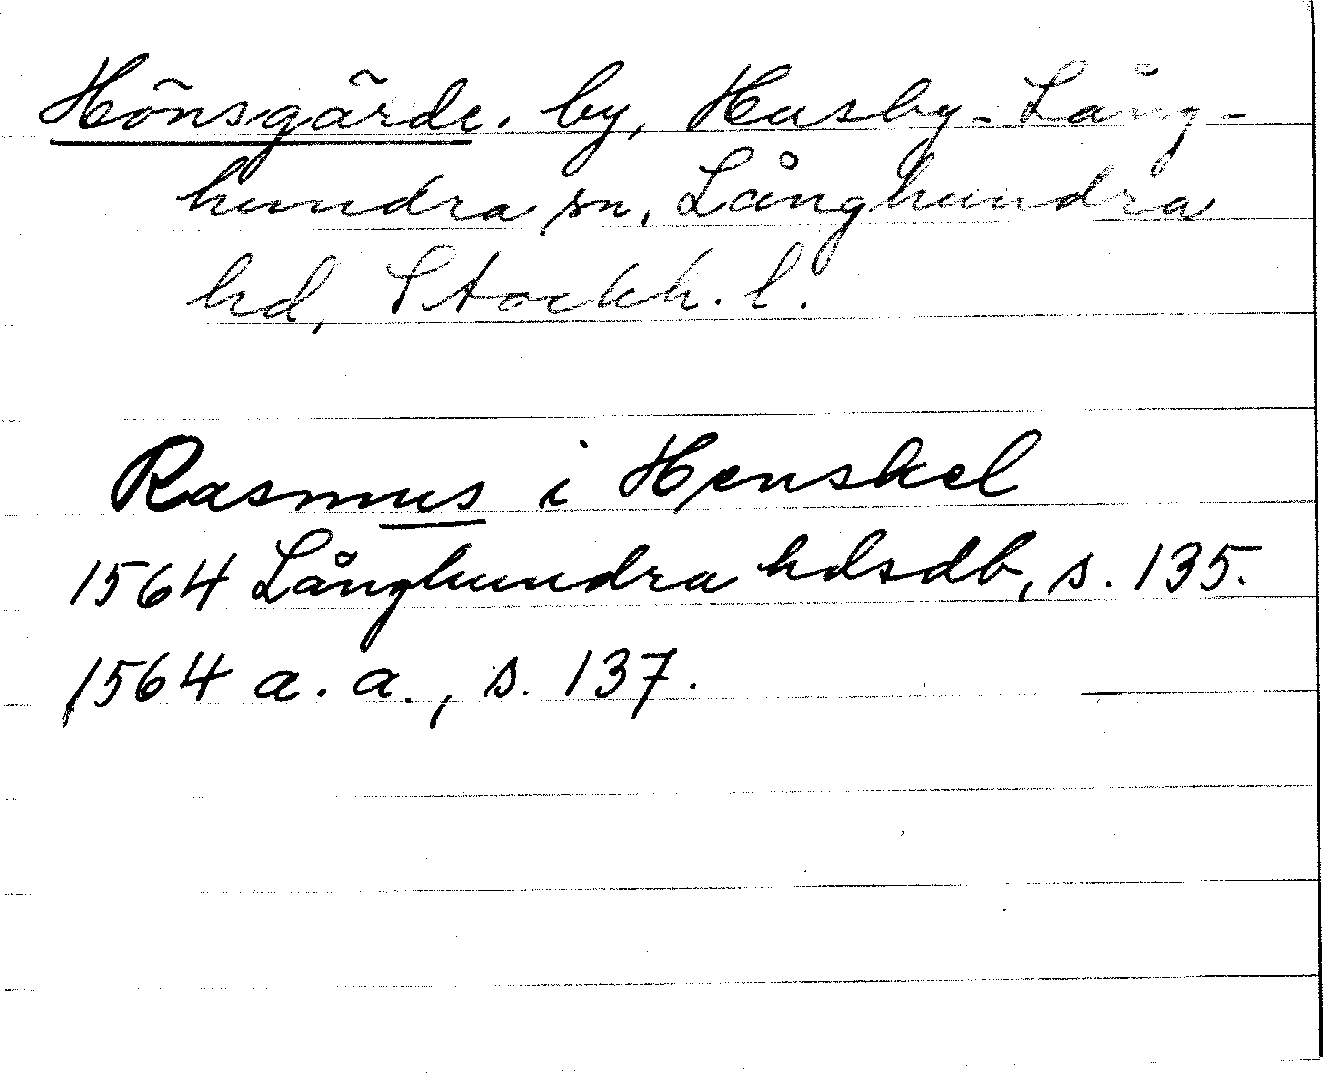 Hönsgärde. by, Husby-Lång-
hundra sn, Långhundra
hd, Stockh. l.
Rasmus i Henskel
1564 Långhundra hdsdb, s. 135.
1564 a. a., s. 137.